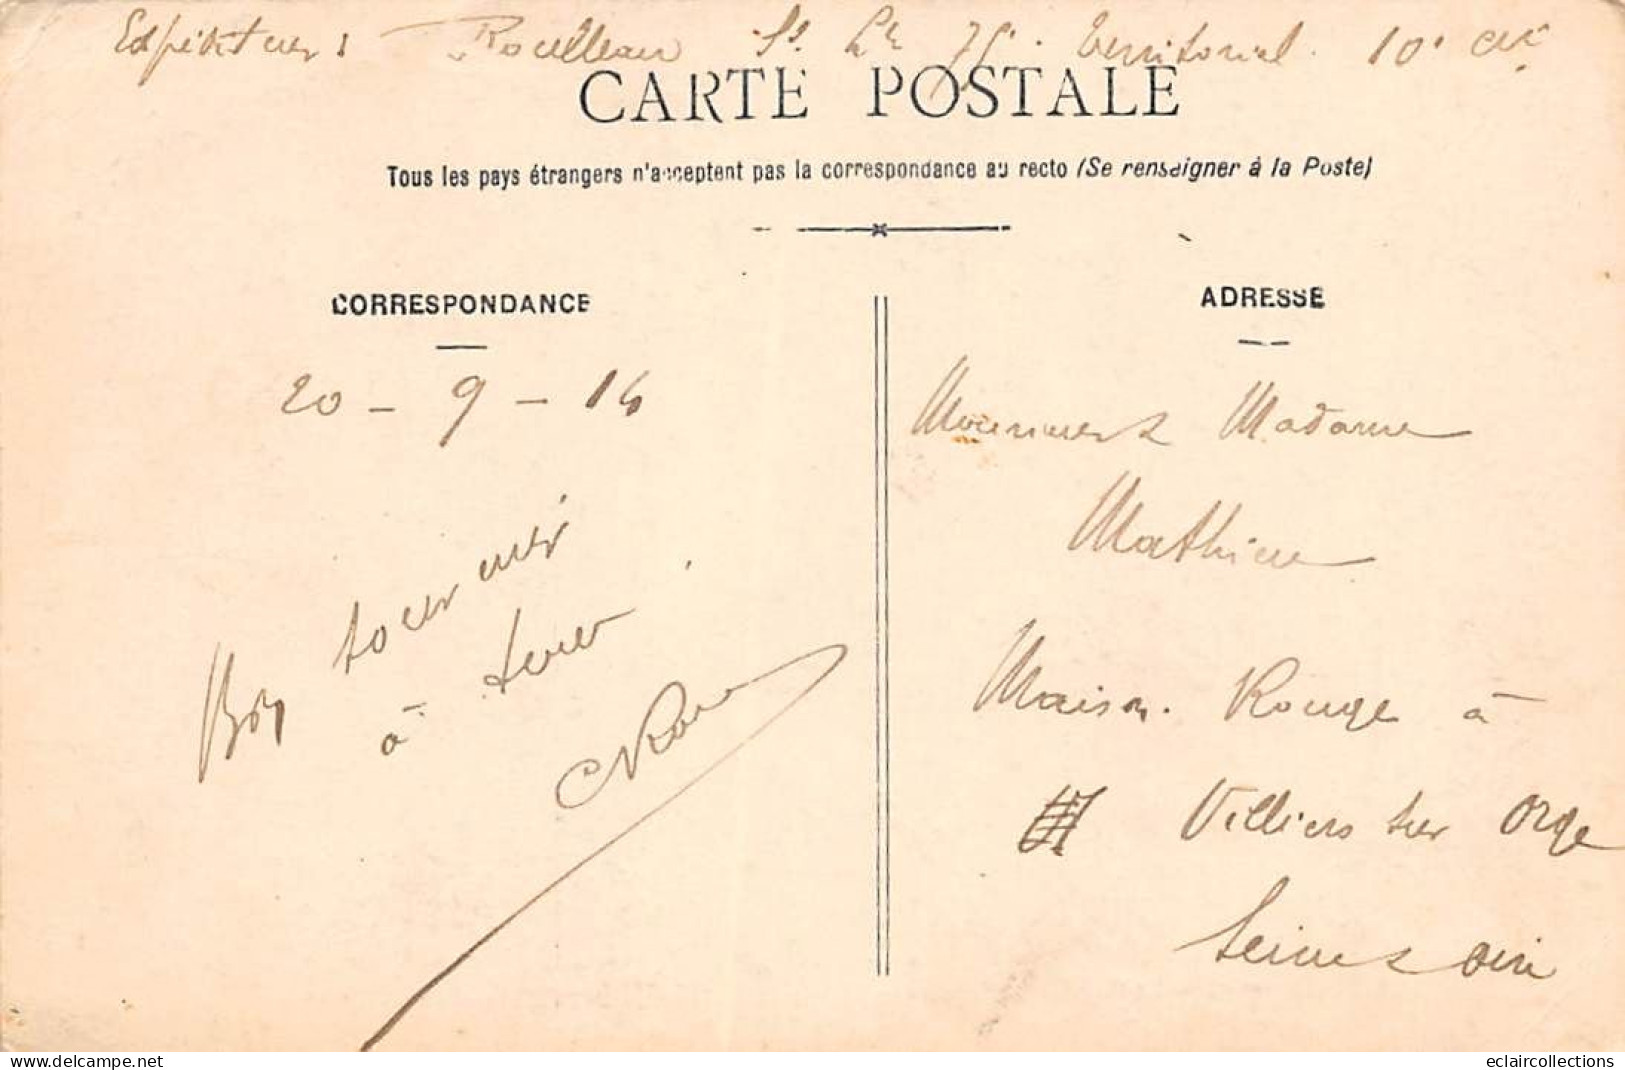 Expéditeur : Roulleau Ss Lt 75e Territorial. 10e Cie
CARTE POSTALE
Tous les pays étrangers n'acceptent pas la correspondance au recto (Se renseigner à la Poste)
CORRESPONDANCE
20 - 9 - 14
Bon souvenir
à tous.
ADRESSE
Madame
Mathieu
Maison Rouge à
Villiers sur Orge
Seine & Oise
Les plus belles collections sur www.delcampe.net
eclaircollections